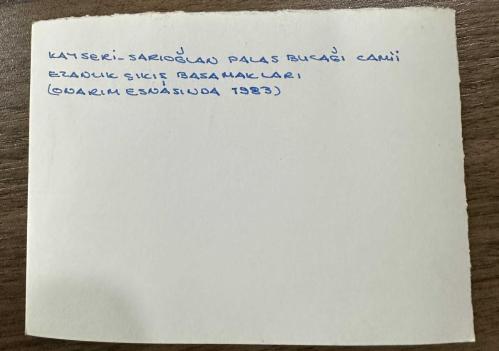 KAYSERİ-SARIOĞLAN PALAS BUCAĞI CAMİİ
EZANLIK ÇIKIŞ BASAMAKLARI
(ONARIM ESNÂSINDA 1983)